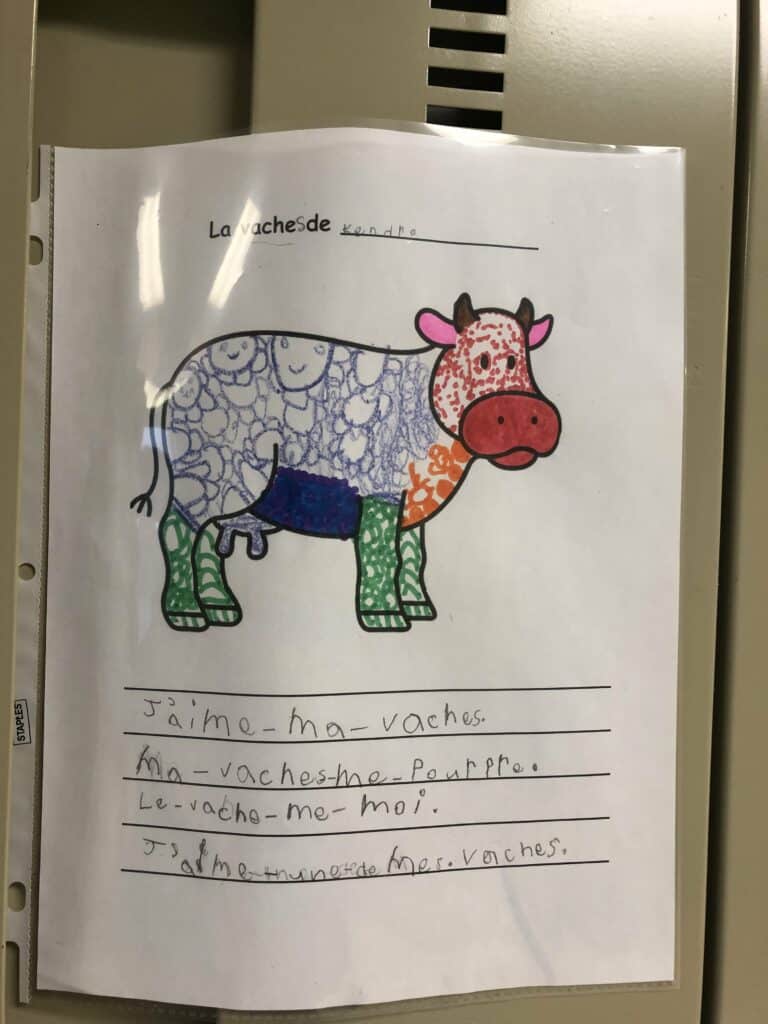 La vachesde Kendra
J'aime-ma-vaches.
Ma-vaches-me-pourpre.
Le-vache-me-moi.
J'aime mes.vaches.
STAPLES